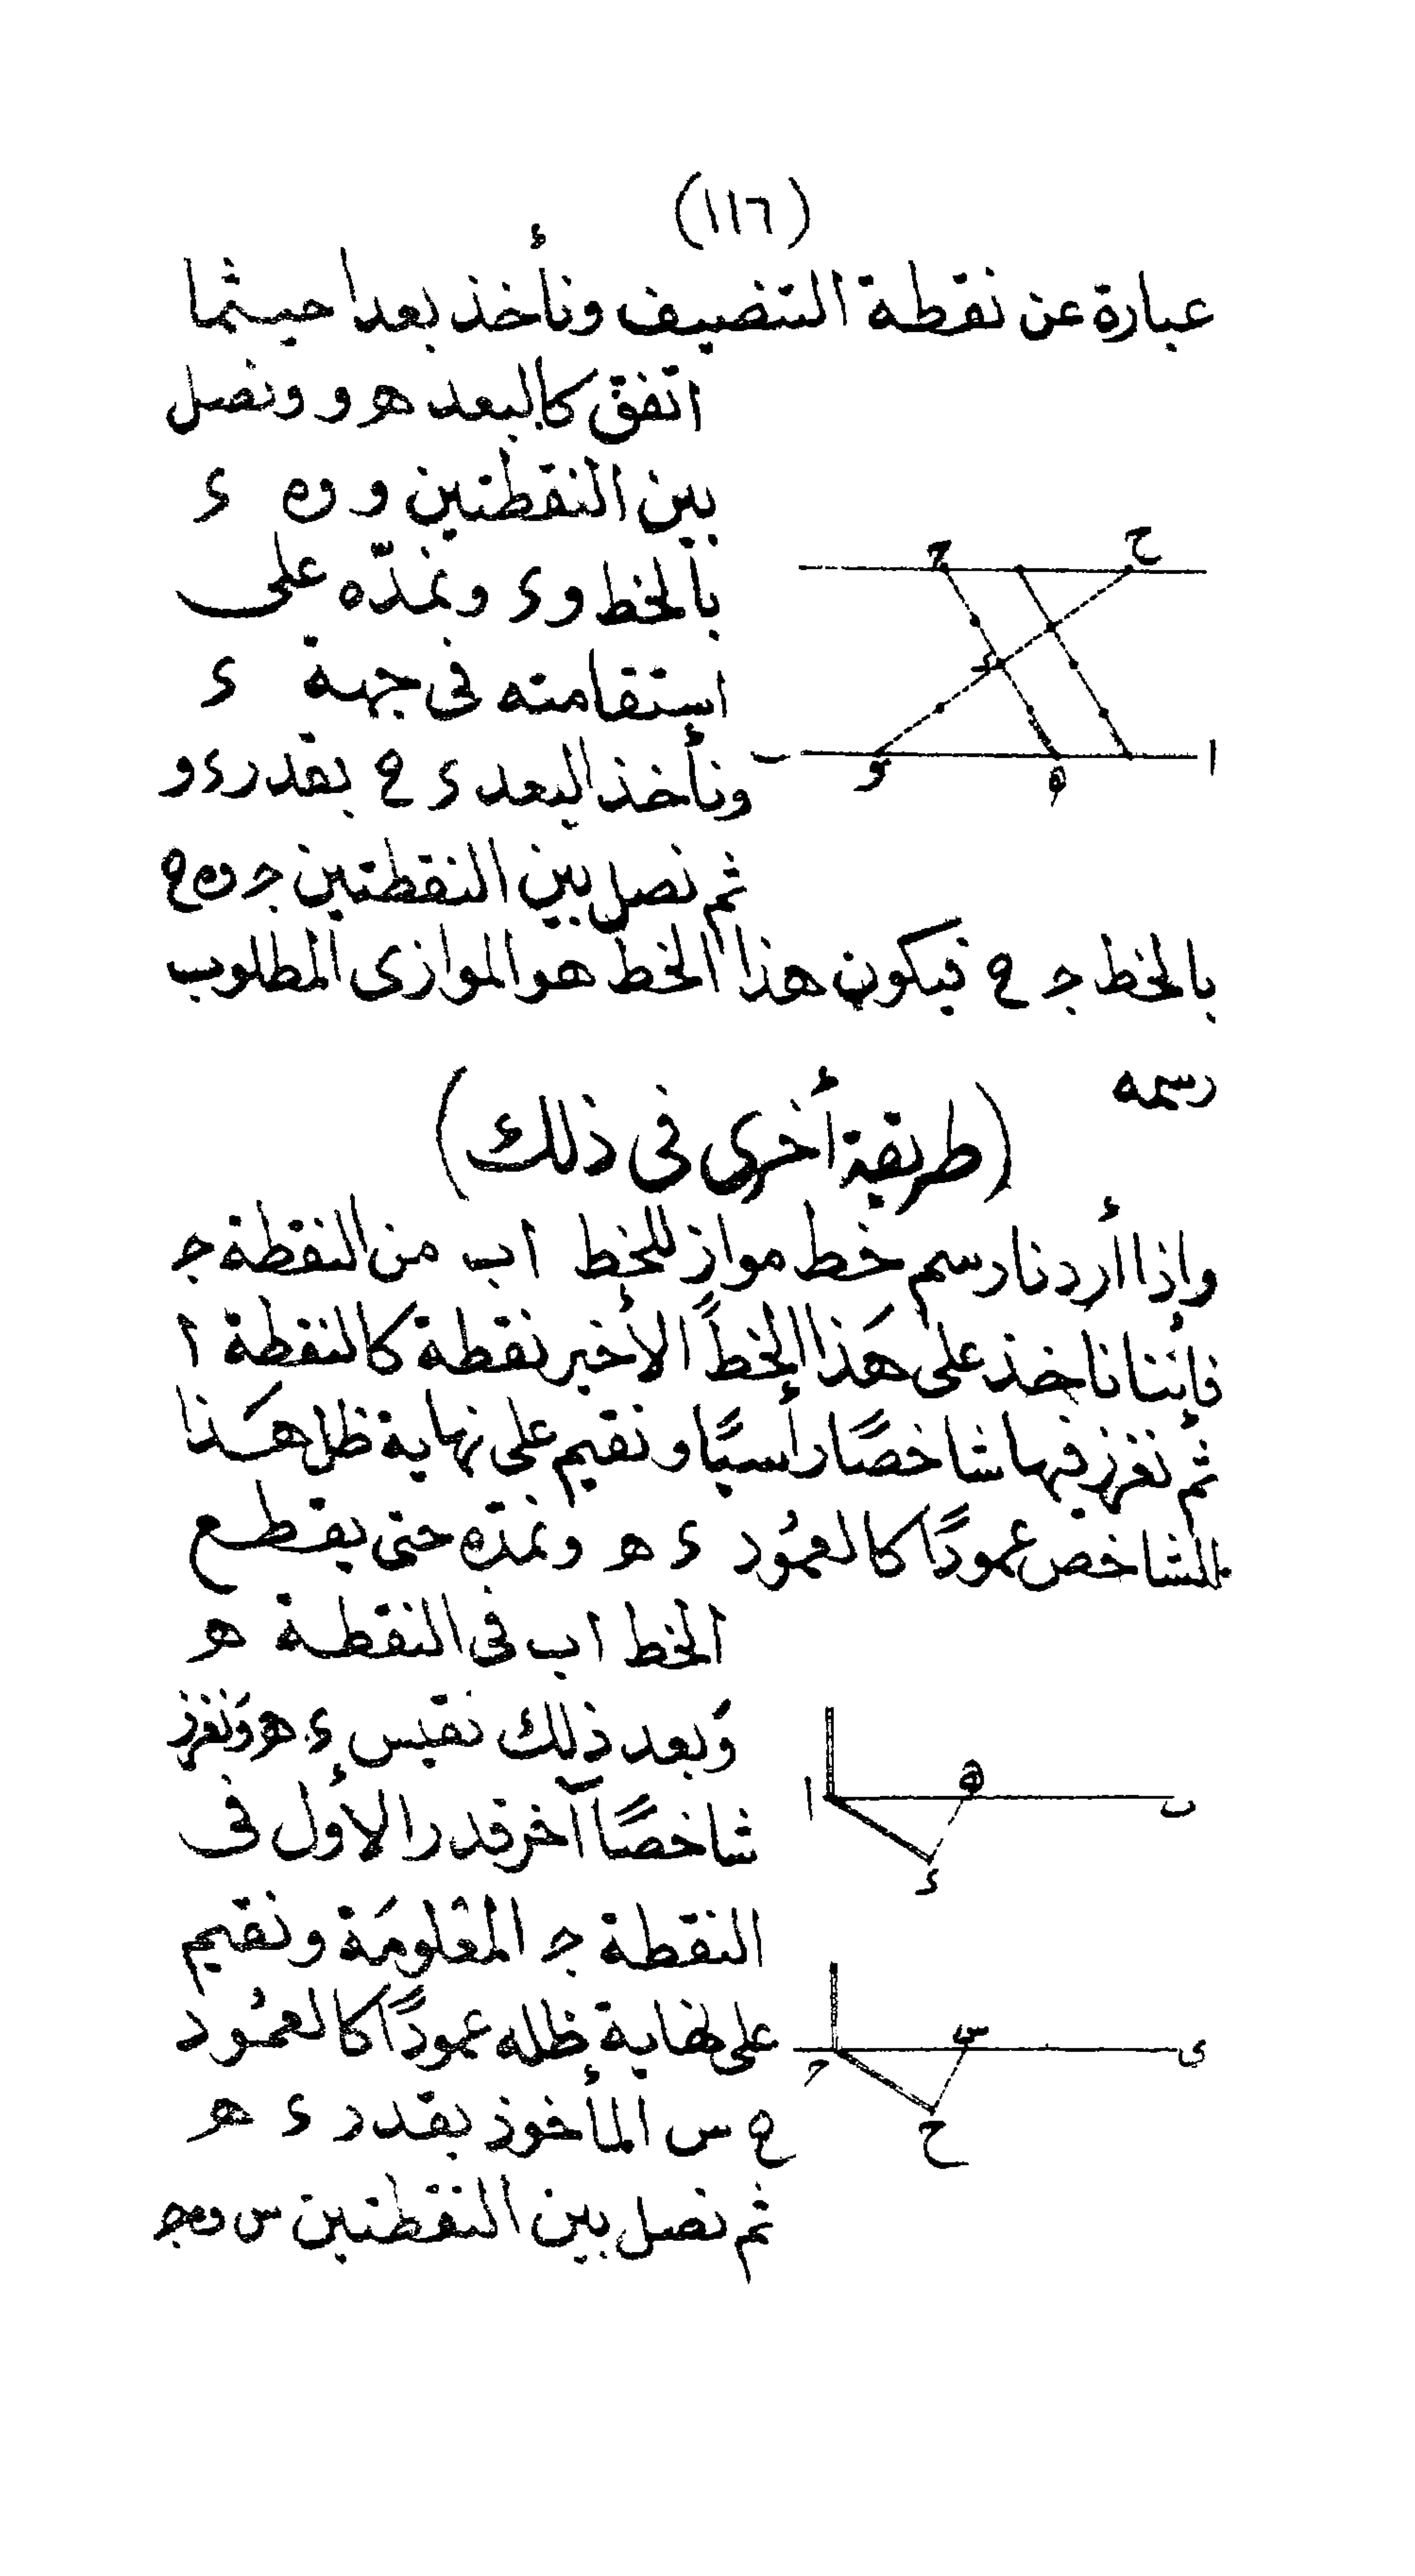 (١١٦)
عبارة عن نقطة التنصيف ونأخذ بعدا حيثما
اتفق كالبعد هـ و ونصل
بين النقطتين و و٥ ء
بالخط و ء ونمدّه على
استقامته فى جهة ء
ونأخذ البعد ء ح بقدر ء و
ثم نصل بين النقطتين جـ و٥ ح
بالخط جـ ح فيكون هذا الخط هو الموازى المطلوب
رسمه
(طريقة أخرى فى ذلك)
وإذا أردنا رسم خط مواز للخط ا ب من النقطة جـ
فإننا ناخذ على هَذا الخطً الأخير نقطة كالنقطة ا
ثم نغرز فيها شاخصًا رأسيًا ونقيم على نهاية ظل هَذا
الشاخص عمودًا كالعمُود ء هـ ونمدّه حتى يقطع
الخط ا ب فى النقطة هـ
وَبعد ذلك نقيس ء هـ وَنغرز
شاخصًا آخر قدر الأول فى
النقطة جـ المعْلومَة ونقيم
على نهاية ظله عمودًا كالعمُود
ح س المأخوذ بقدر ء هـ
ثم نصل بين النقطتين س و٥ جـ
ح
ح
ء
ا
ب
و
ه
ا
ه
ب
ء
ح
س
ى
ح